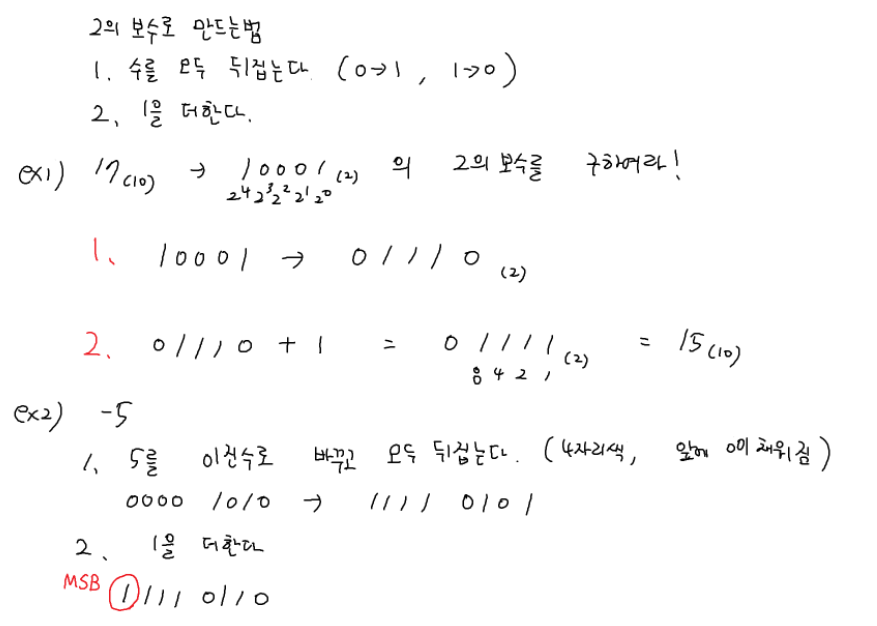 2의 보수로 만드는법
1. 수를 모두 뒤집는다. (0→1, 1→0)
2. 1을 더한다.
ex1) 17(10) → 10001(2) 의 2의 보수를 구하여라!
2⁴2³2²2¹2⁰
1. 10001 → 01110(2)
2. 01110 + 1 = 01111(2) = 15(10)
8 4 2 1
ex2) -5
1. 5를 이진수로 바꾸고 모두 뒤집는다. (4자리씩, 앞에 0이 채워짐)
0000 1010 → 1111 0101
2. 1을 더한다
MSB 1111 0110